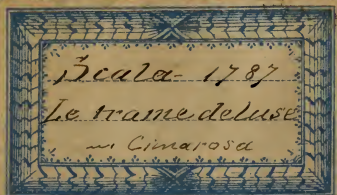 Scala - 1787
Le trame deluse
Cimarosa